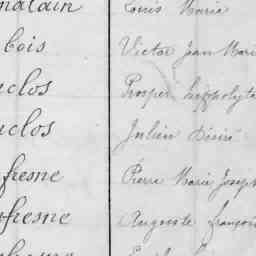 Louis Marie
bois Victor Jean Marie
clos Prosper hyppolyte
clos Julien Désiré
fresne Pierre Marie Joseph
fresne Auguste françois